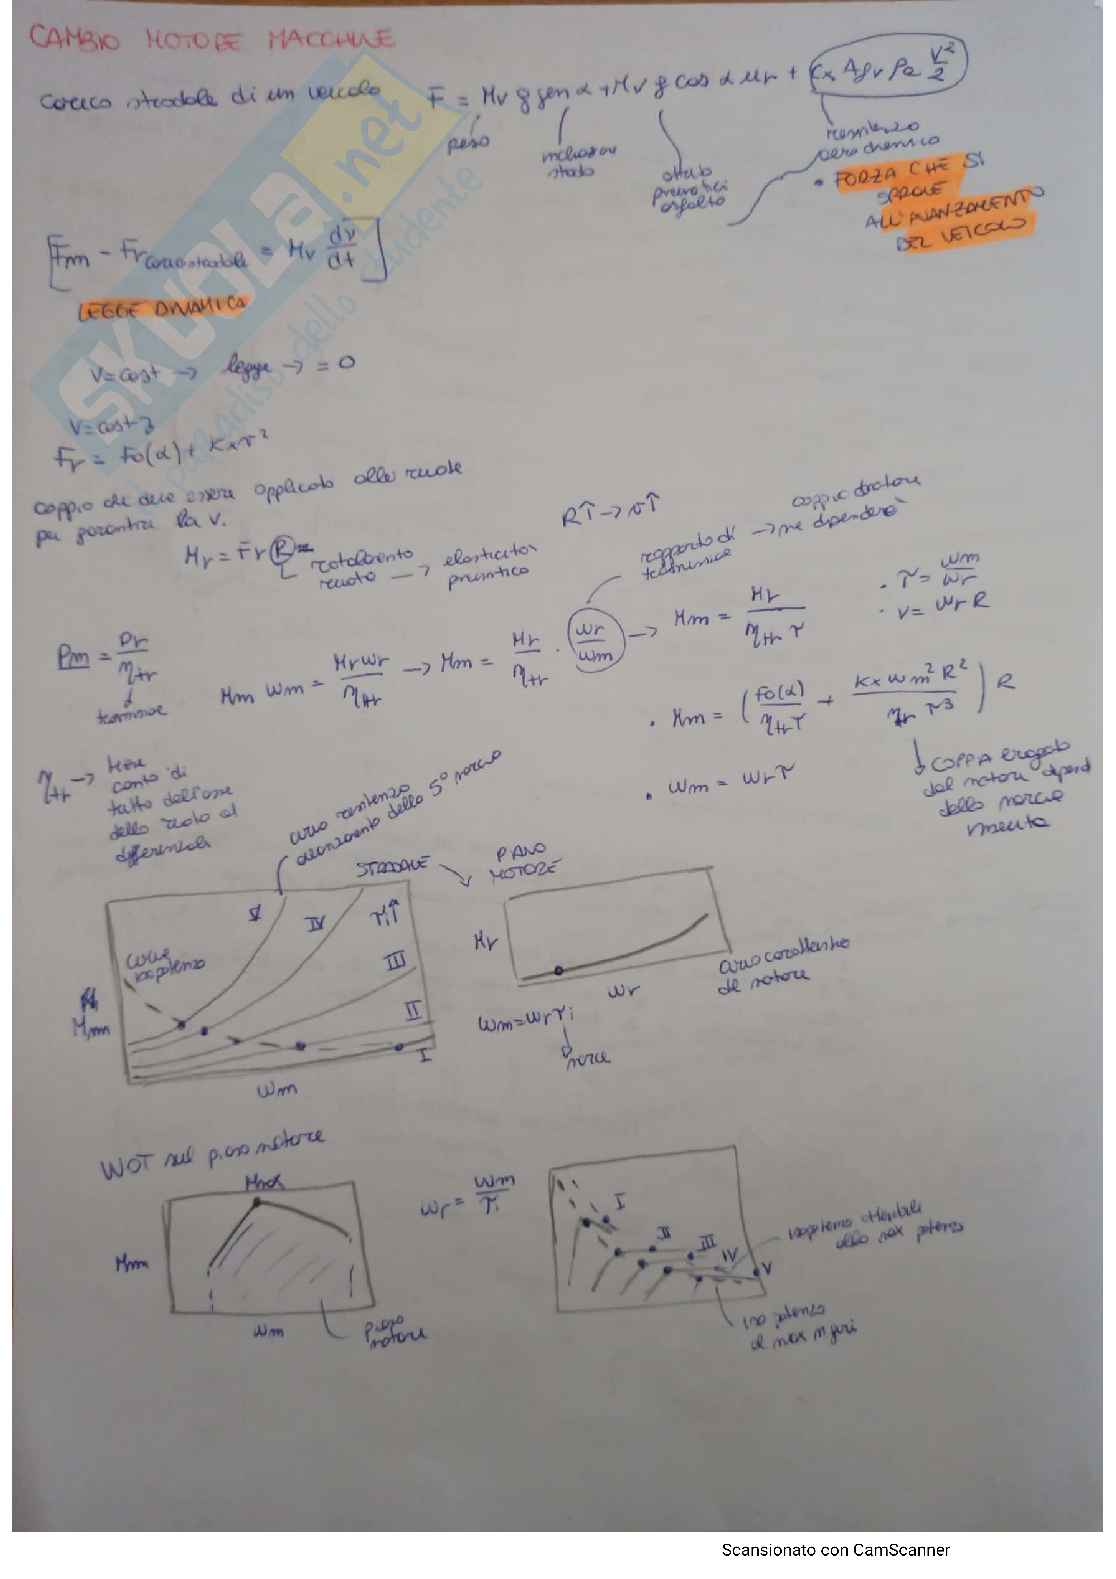 CAMBIO MOTORE MACCHINE
carico stradale di un veicolo F = Mv g sen α + Mv g cos α μr + Cx Afv ρa v²/2
peso
inclinazione strada
attrito pneumatici asfalto
resistenza aerodinamica
• FORZA CHE SI OPPONE ALL'AVANZAMENTO DEL VEICOLO
[Fm - Fr carico stradale = Mv dv/dt]
LEGGE DINAMICA
V=cost → legge → = 0
V=cost
Fr = Fo(α) + Kx v²
coppia che deve essere applicata alle ruote
per garantire la v.
Mr = Fr R =
rotolamento ruota → elasticità pneumatico
R↑ → v↑
rapporto di trasmissione → ne dipenderà
coppia motore
Pm = Pr/ηtr
Mm ωm = Mr ωr/ηtr → Mm = Mr/ηtr · ωr/ωm → Mm = Mr/ηtr τ
• τ = ωm/ωr
• v = ωr R
• Mm = (Fo(α)/ηtr τ + Kx ωm² R²/ηtr τ³) R
• ωm = ωr τ
COPPIA erogata
dal motore
della marcia
inserita
ηtr → tiene
conto di
tutto dall'asse
della ruota al
differenziale
curva resistenza
avanzamento della 5° marcia
STRADALE
PIANO MOTORE
V IV τi↑
III
II
I
curve isopotenza
Mm
ωm
Mr
ωr
curva caratteristica
del motore
ωm=ωr τi
marce
WOT sul piano motore
Mmax
Mm
ωm
piano motore
ωr = ωm/τi
I
II
III
IV
V
isopotenza
alla max potenza
iso potenza
al max n giri
SKUOLA.net
paradiso dello studente
Scansionato con CamScanner